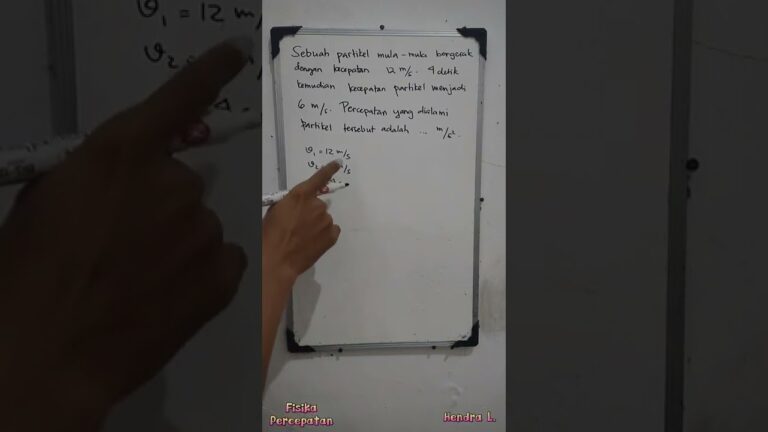 Sebuah partikel mula-mula bergerak
dengan kecepatan 12 m/s. 4 detik
kemudian kecepatan partikel menjadi
6 m/s. Percepatan yang dialami
partikel tersebut adalah ... m/s².
v₁ = 12 m/s
v₂ = m/s
Fisika
Percepatan
Hendra L.